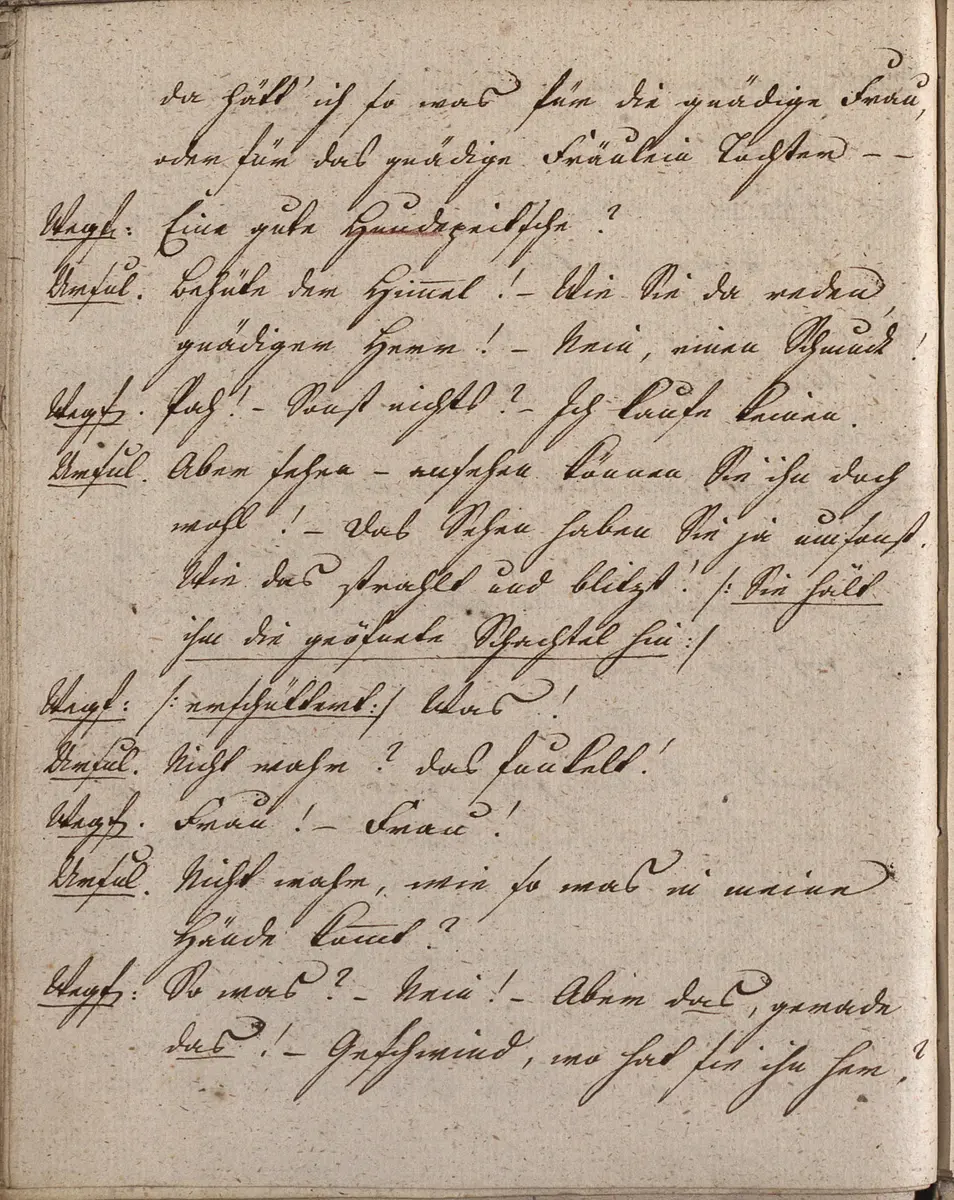 da hätt' ich so was für die gnädige Frau,
oder für das gnädige Fräulein Tochter – –
Wegf: Eine gute Hundepeitsche?
Ursul. Behüte der Him̅el! – Wie Sie da reden,
gnädiger Herr! – Nein, einen Schmuck!
Wegf. Pah! – Sonst nichts? – Ich kaufe keinen.
Ursul. Aber sehen – ansehen können Sie ihn doch
wohl! – Das Sehen haben Sie ja umsonst.
Wie das strahlt und blitzt! /: Sie hält
ihm die geöfnete Schachtel hin :/
Wegf: /: erschüttert :/ Was!
Ursul. Nicht wahr? das funkelt!
Wegf. Frau! – Frau!
Ursul. Nicht wahr, wie so was in meine
Hände kom̅t?
Wegf: So was? – Nein! – Aber das, gerade
das! – Geschwind, wo hat sie ihn her?